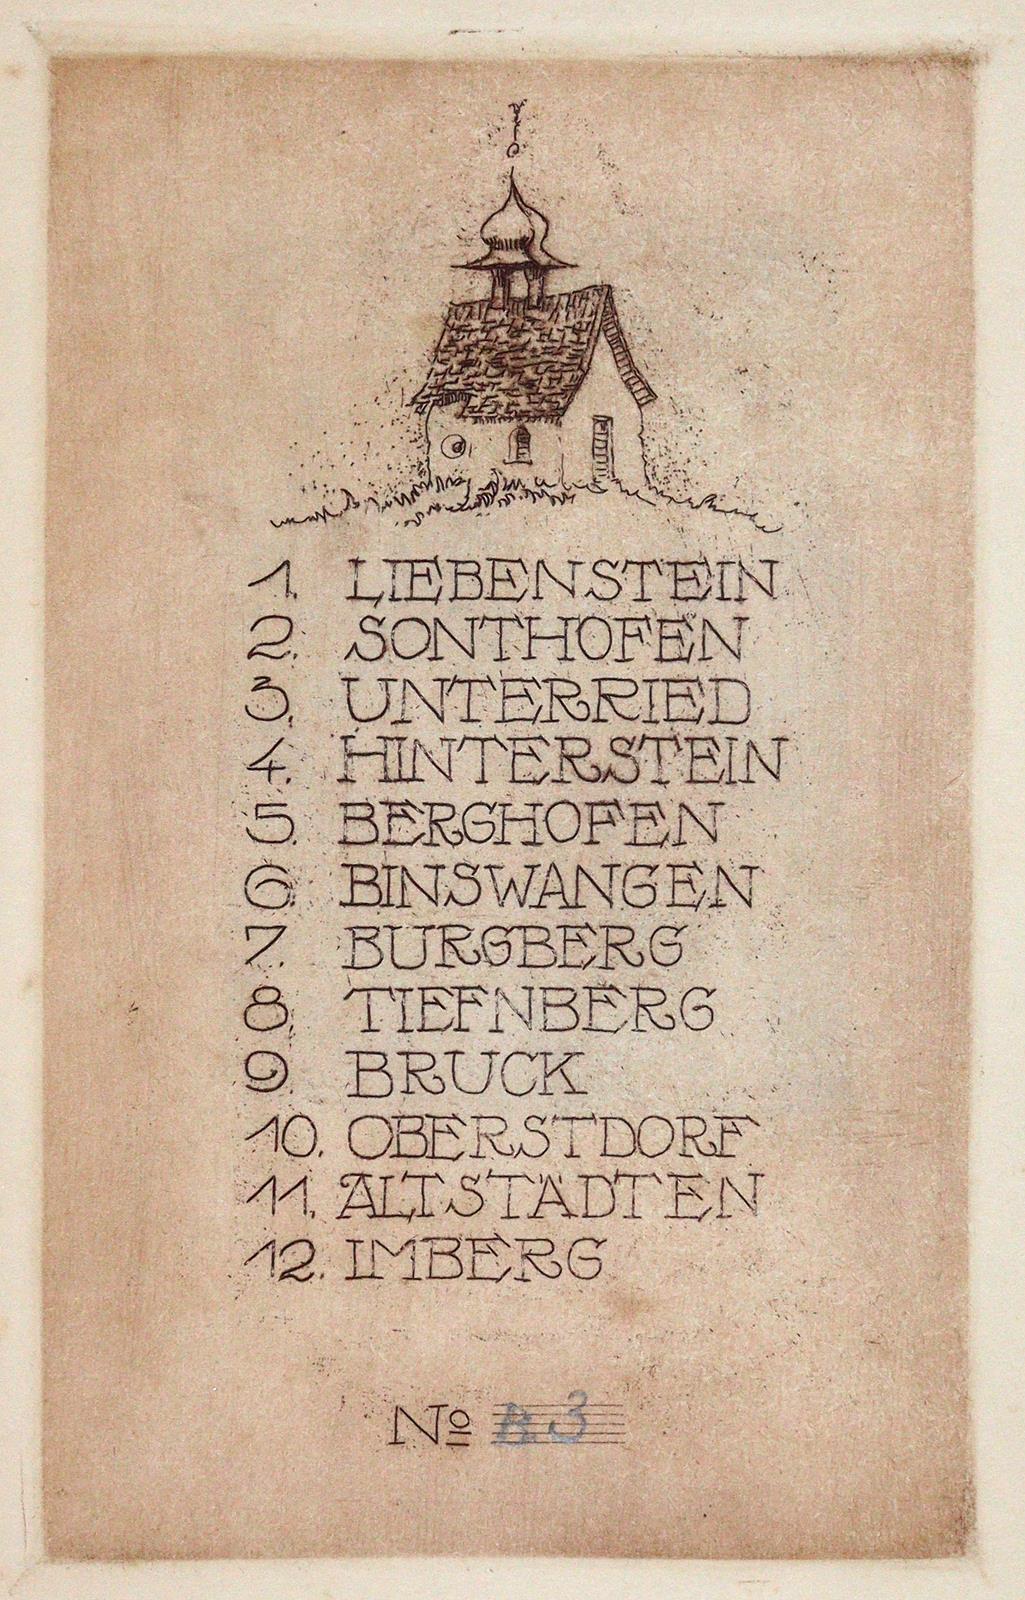 1. LIEBENSTEIN
2. SONTHOFEN
3. UNTERRIED
4. HINTERSTEIN
5. BERGHOFEN
6. BINSWANGEN
7. BURGBERG
8. TIEFNBERG
9. BRUCK
10. OBERSTDORF
11. ALTSTÄDTEN
12. IMBERG
No B.3